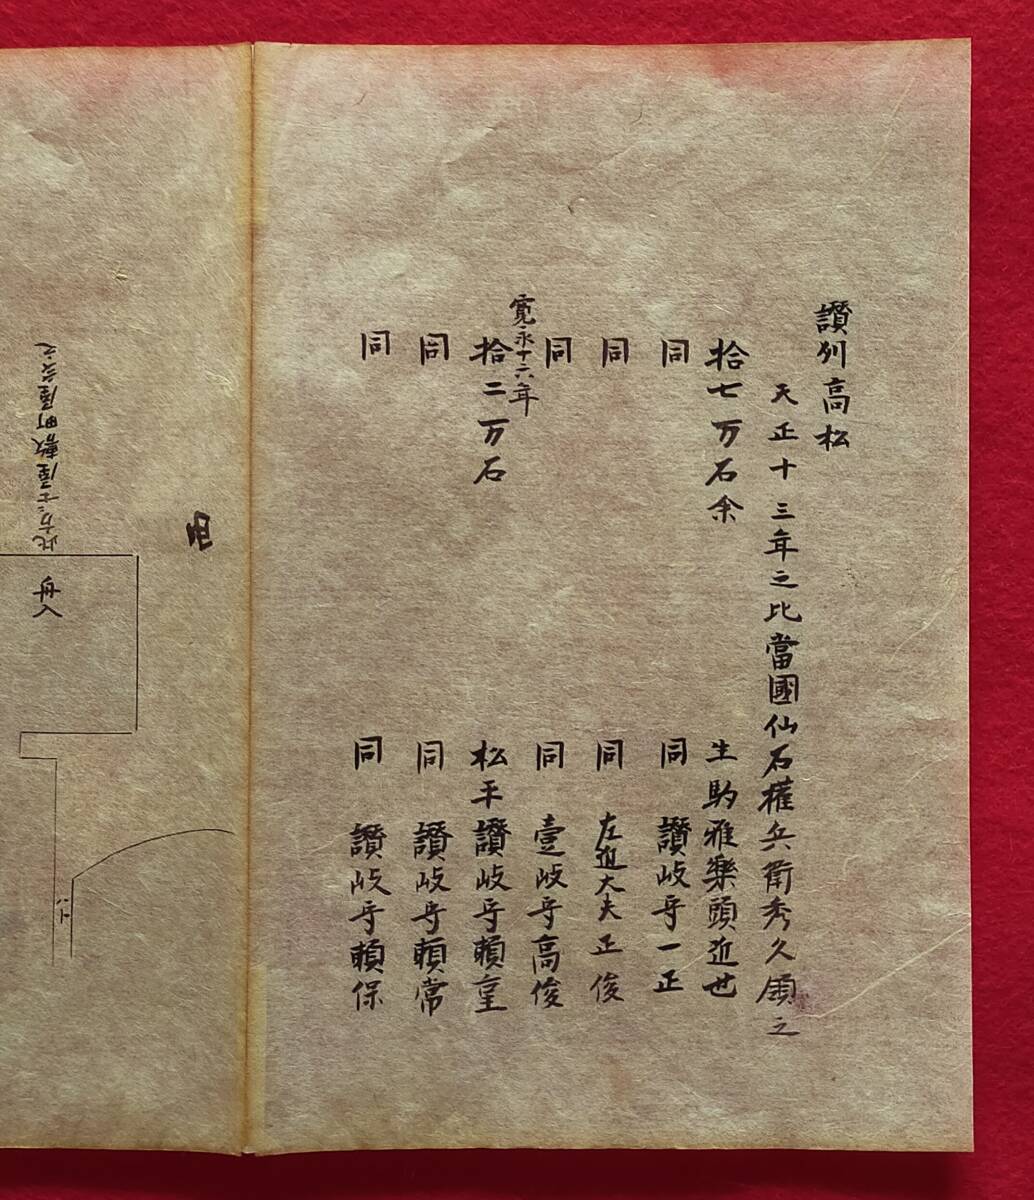 讃列高松
天正十三年之比當國仙石権兵衛秀久領之
拾七万石余 生駒雅樂頭近世
同 同 讃岐守一正
同 同 左近大夫正俊
同 同 壹岐守高俊
寛永十六年
拾二万石 松平讃岐守頼重
同 同 讃岐守頼常
同 同 讃岐守頼保
此方士屋敷町屋敷之
入舟